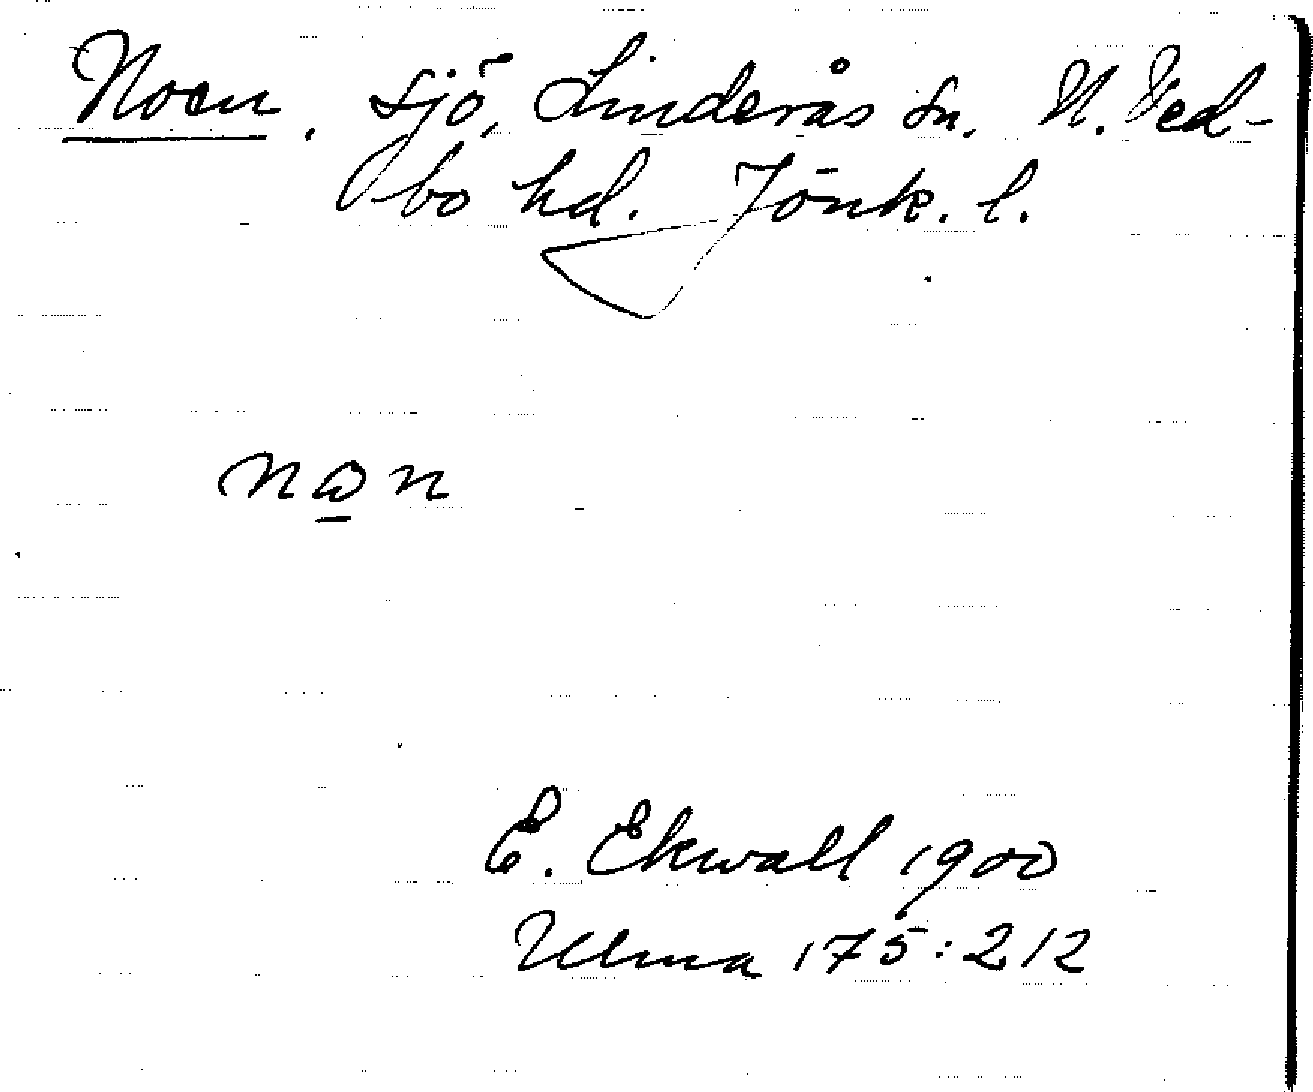 Noen. sjö, Linderås sn. N. Ved-
bo hd. Jönk. l.
E. Ekwall 1900
Ulma 175:212